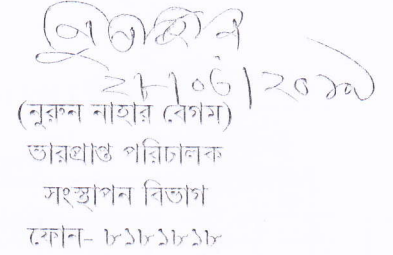 ২৮/০৩/২০১৯
(নুরুন নাহার বেগম)
ভারপ্রাপ্ত পরিচালক
সংস্থাপন বিভাগ
ফোন- ৮১৮১৮১৮